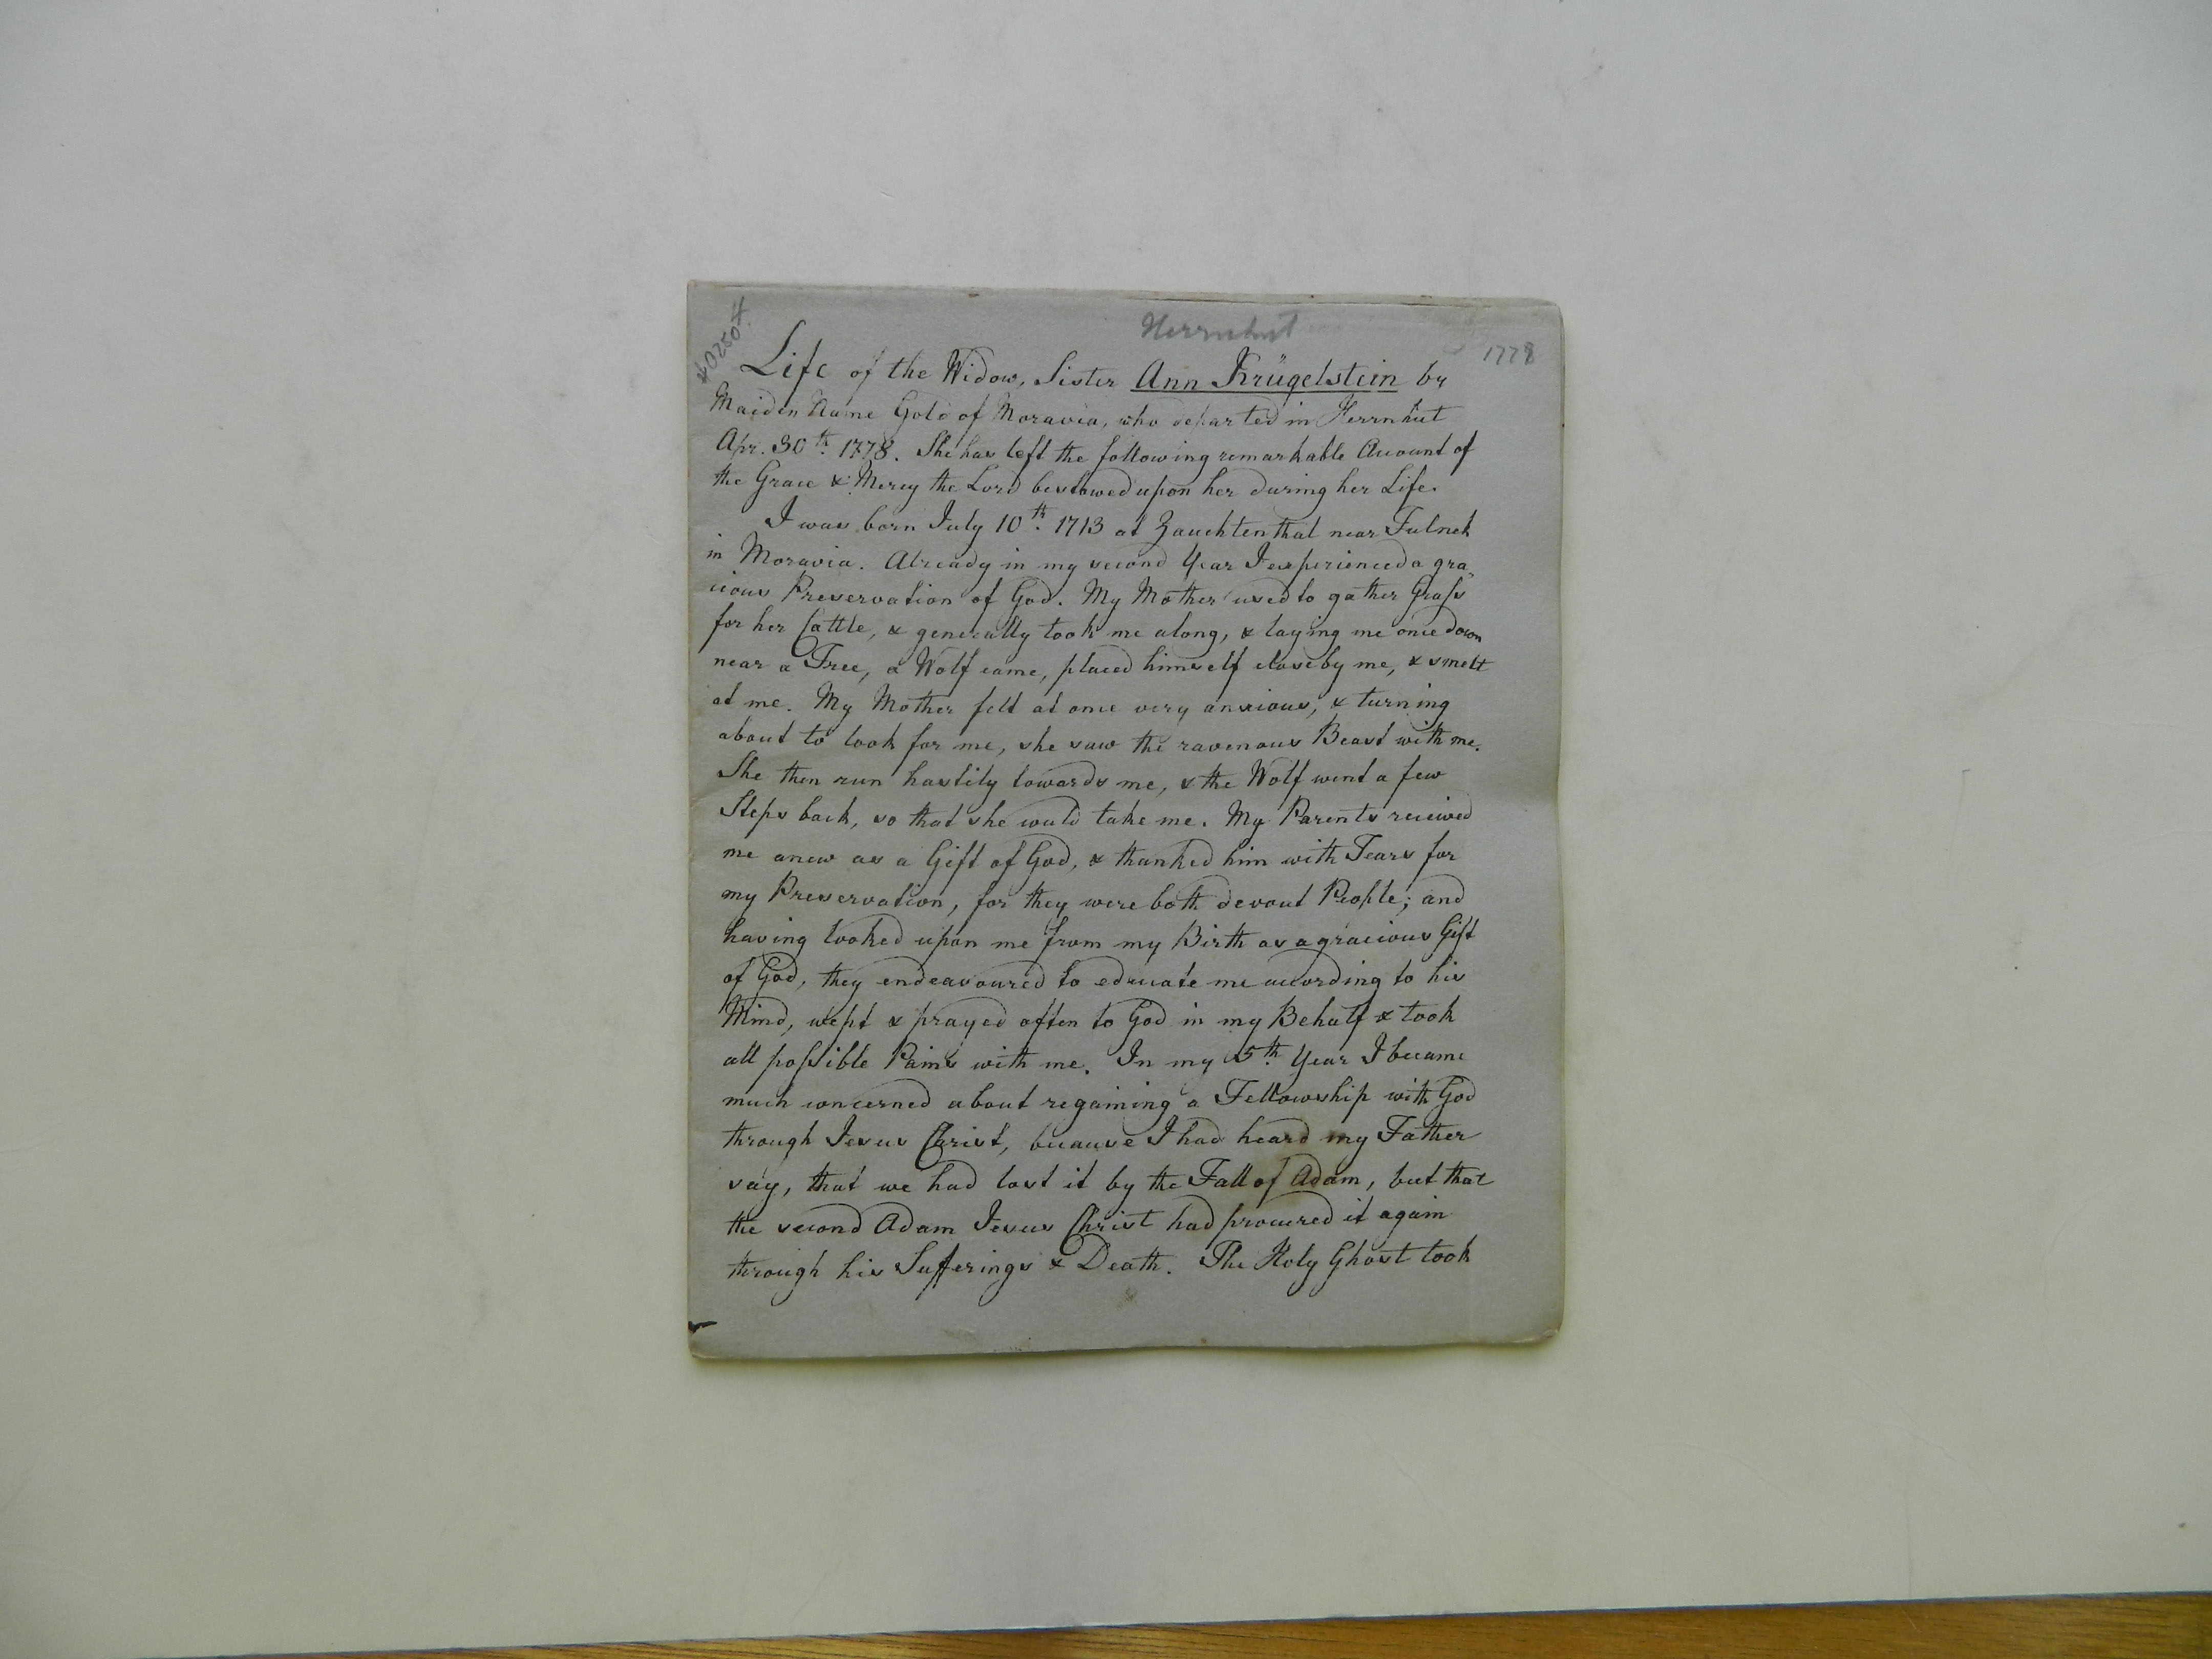 Herrnhut
1778
Life of the Widow, Sister Ann Krügelstein by
Maiden Name Gold of Moravia, who departed in Herrnhut
Apr. 30th. 1778. She has left the following remarkable Account of
the Grace & Mercy the Lord bestowed upon her during her Life.
I was born July 10th. 1713 at Zauchtenthal near Fulnek
in Moravia. Already in my second Year I experienced a gra-
cious Preservation of God. My Mother used to gather Grass
for her Cattle, & generally took me along, & laying me once down
near a Tree, a Wolf came, placed himself close by me, & smelt
at me. My Mother felt at once very anxious, & turning
about to look for me, she saw the ravenous Beast with me.
She then run hastily towards me, & the Wolf went a few
Steps back, so that she could take me. My Parents received
me anew as a Gift of God, & thanked him with Tears for
my Preservation, for they were both devout People; and
having looked upon me from my Birth as a gracious Gift
of God, they endeavoured to educate me according to his
Mind, wept & prayed often to God in my Behalf & took
all possible Pains with me. In my 5th. Year I became
much concerned about regaining a Fellowship with God
through Jesus Christ, because I had heard my Father
say, that we had lost it by the Fall of Adam, but that
the second Adam Jesus Christ had procured it again
through his Sufferings & Death. The Holy Ghost took